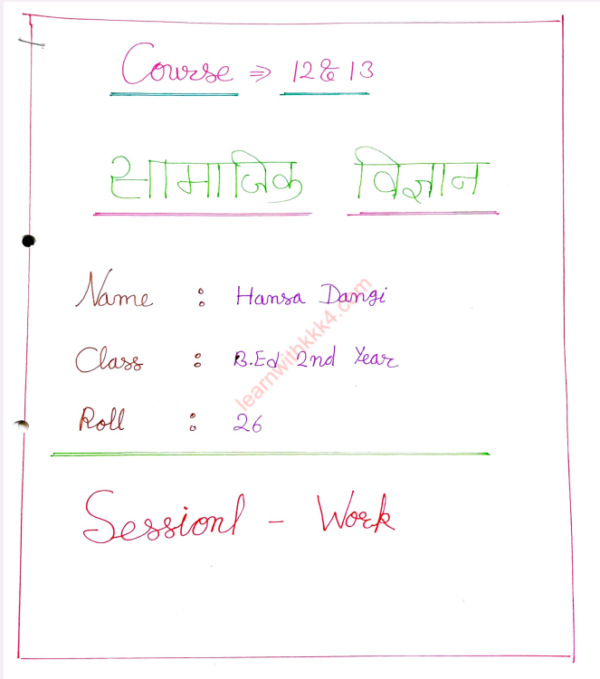 Course ⇒ 12 & 13
सामाजिक विज्ञान
Name : Hansa Dangi
Class : B.Ed 2nd Year
Roll : 26
learnwithkkk4.com
Sessionl - Work